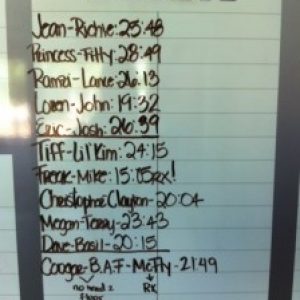 Jean-Richie: 25:48
Princess-Fitty: 28:49
Ramzi-Lance: 26:13
Loren-John: 19:32
Eric-Josh: 26:39
Tiff-Lil' Kim: 24:15
Freak-Mike: 15:15RX!
Christopher Clayton-20:04
Megan-Terry-23:43
Dave-Basil-20:15
Coogar-B.A.F-McFly-21:49
no 2 RX